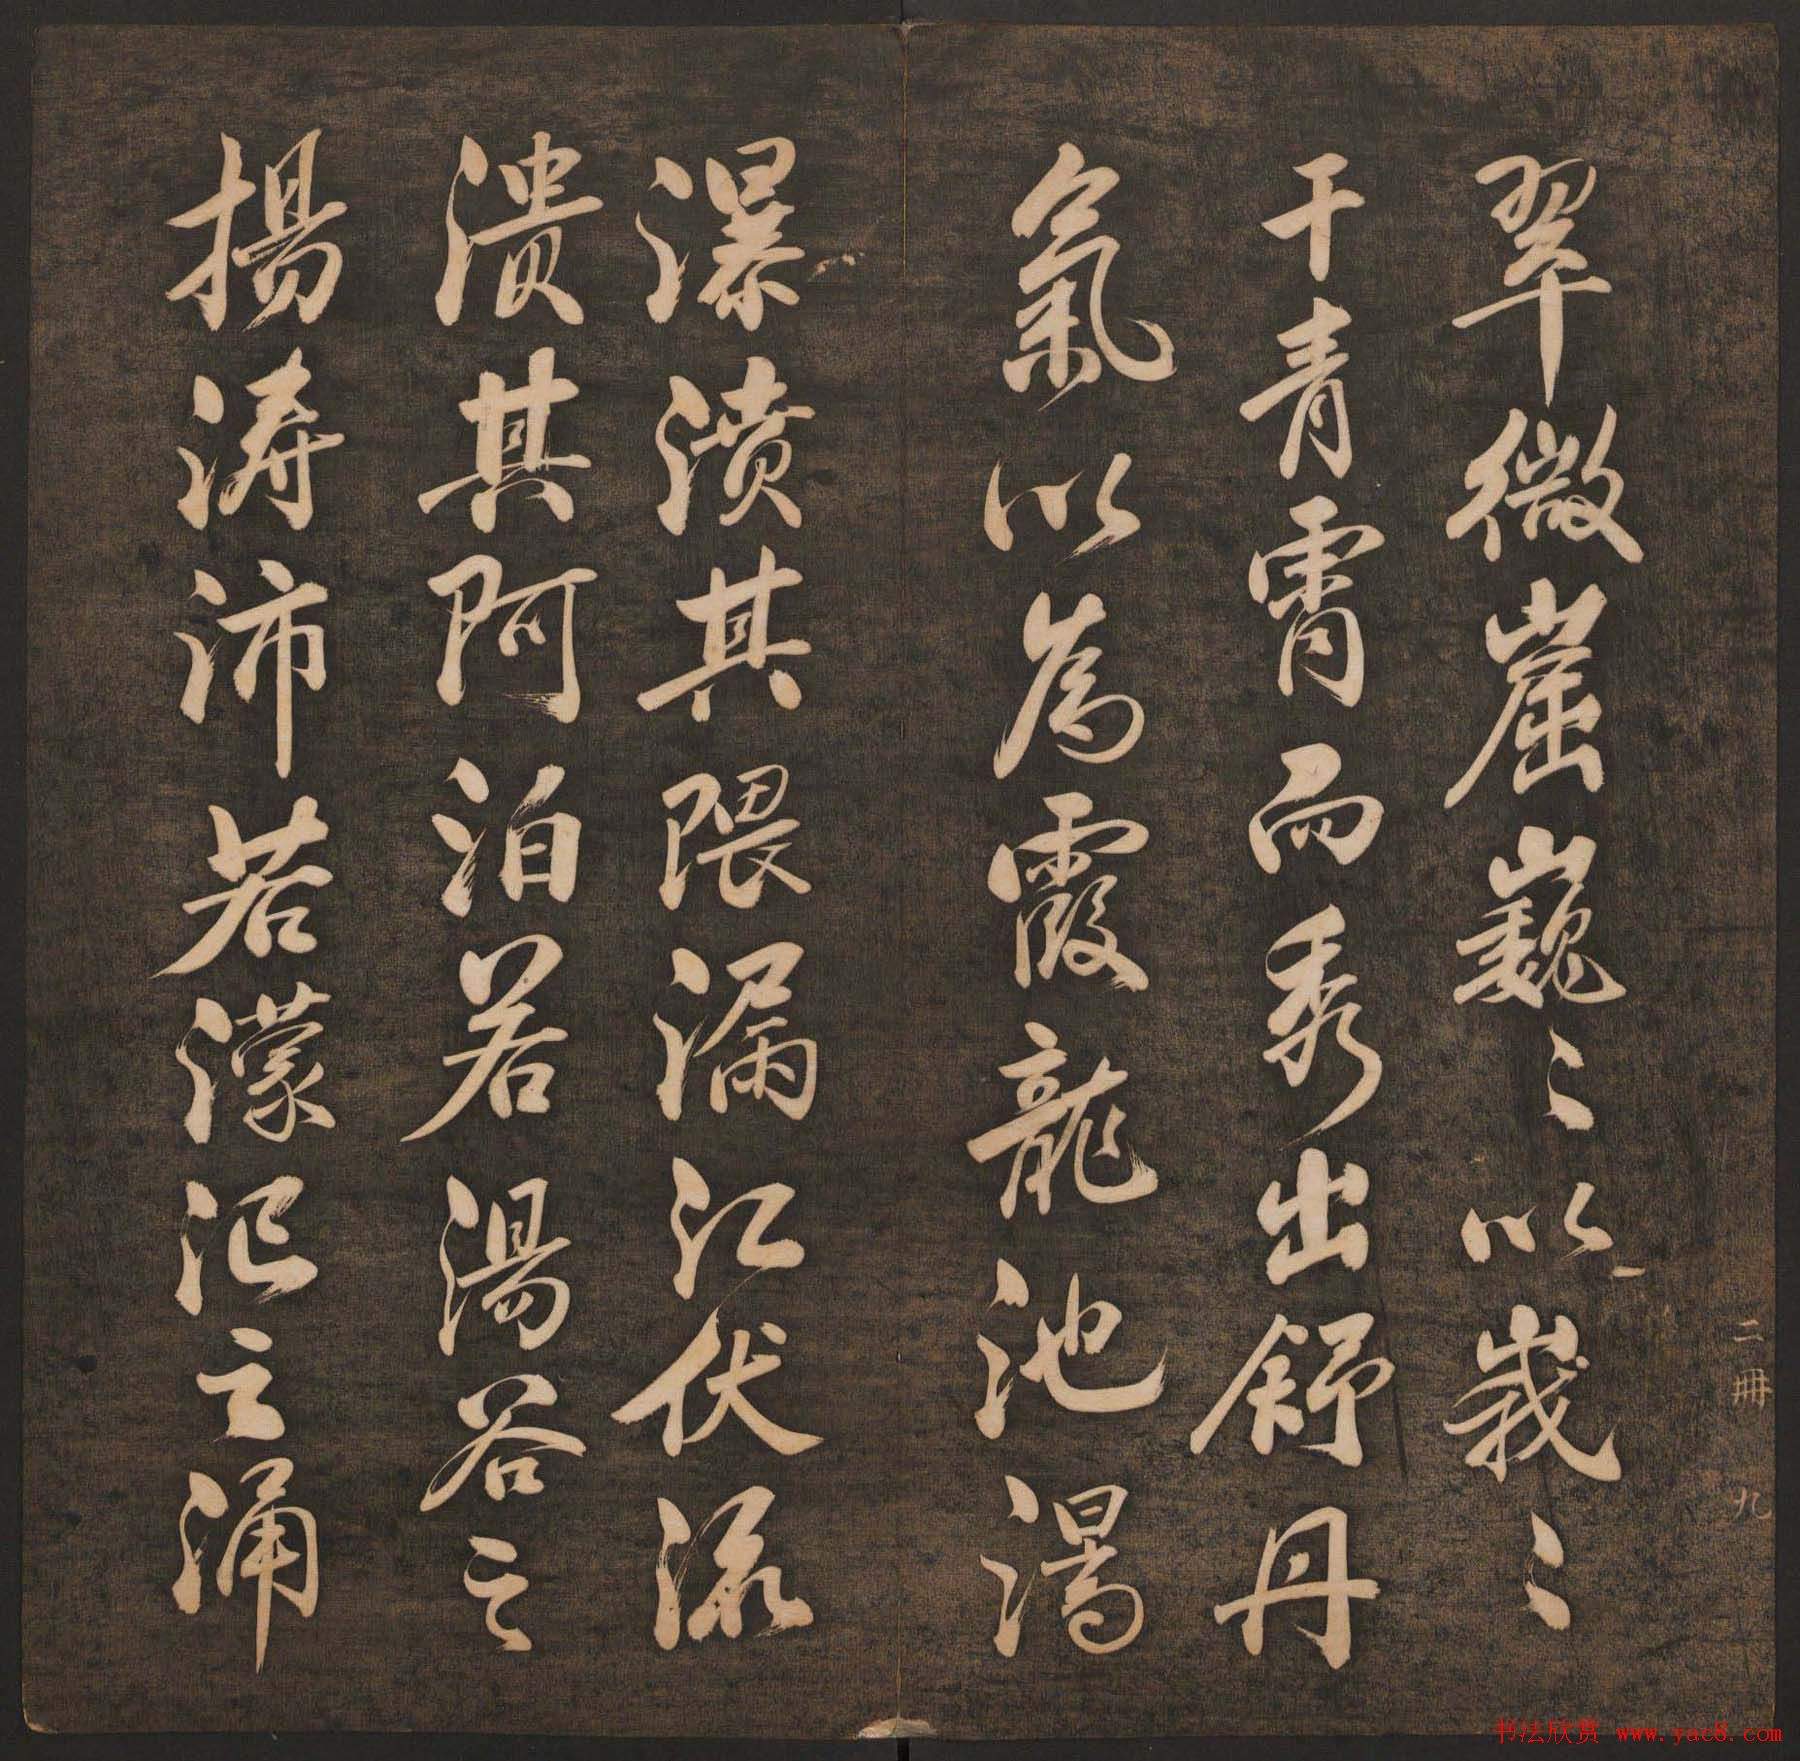 翠微崫巍〻以峩〻
干青霄而秀出舒丹
氣以為霞龍池
瀑濆其隈漏江伏流
潰其阿泊若湯谷之
揚濤沛若濛汜之涌
二冊 九
书法欣赏 www.yac8.com